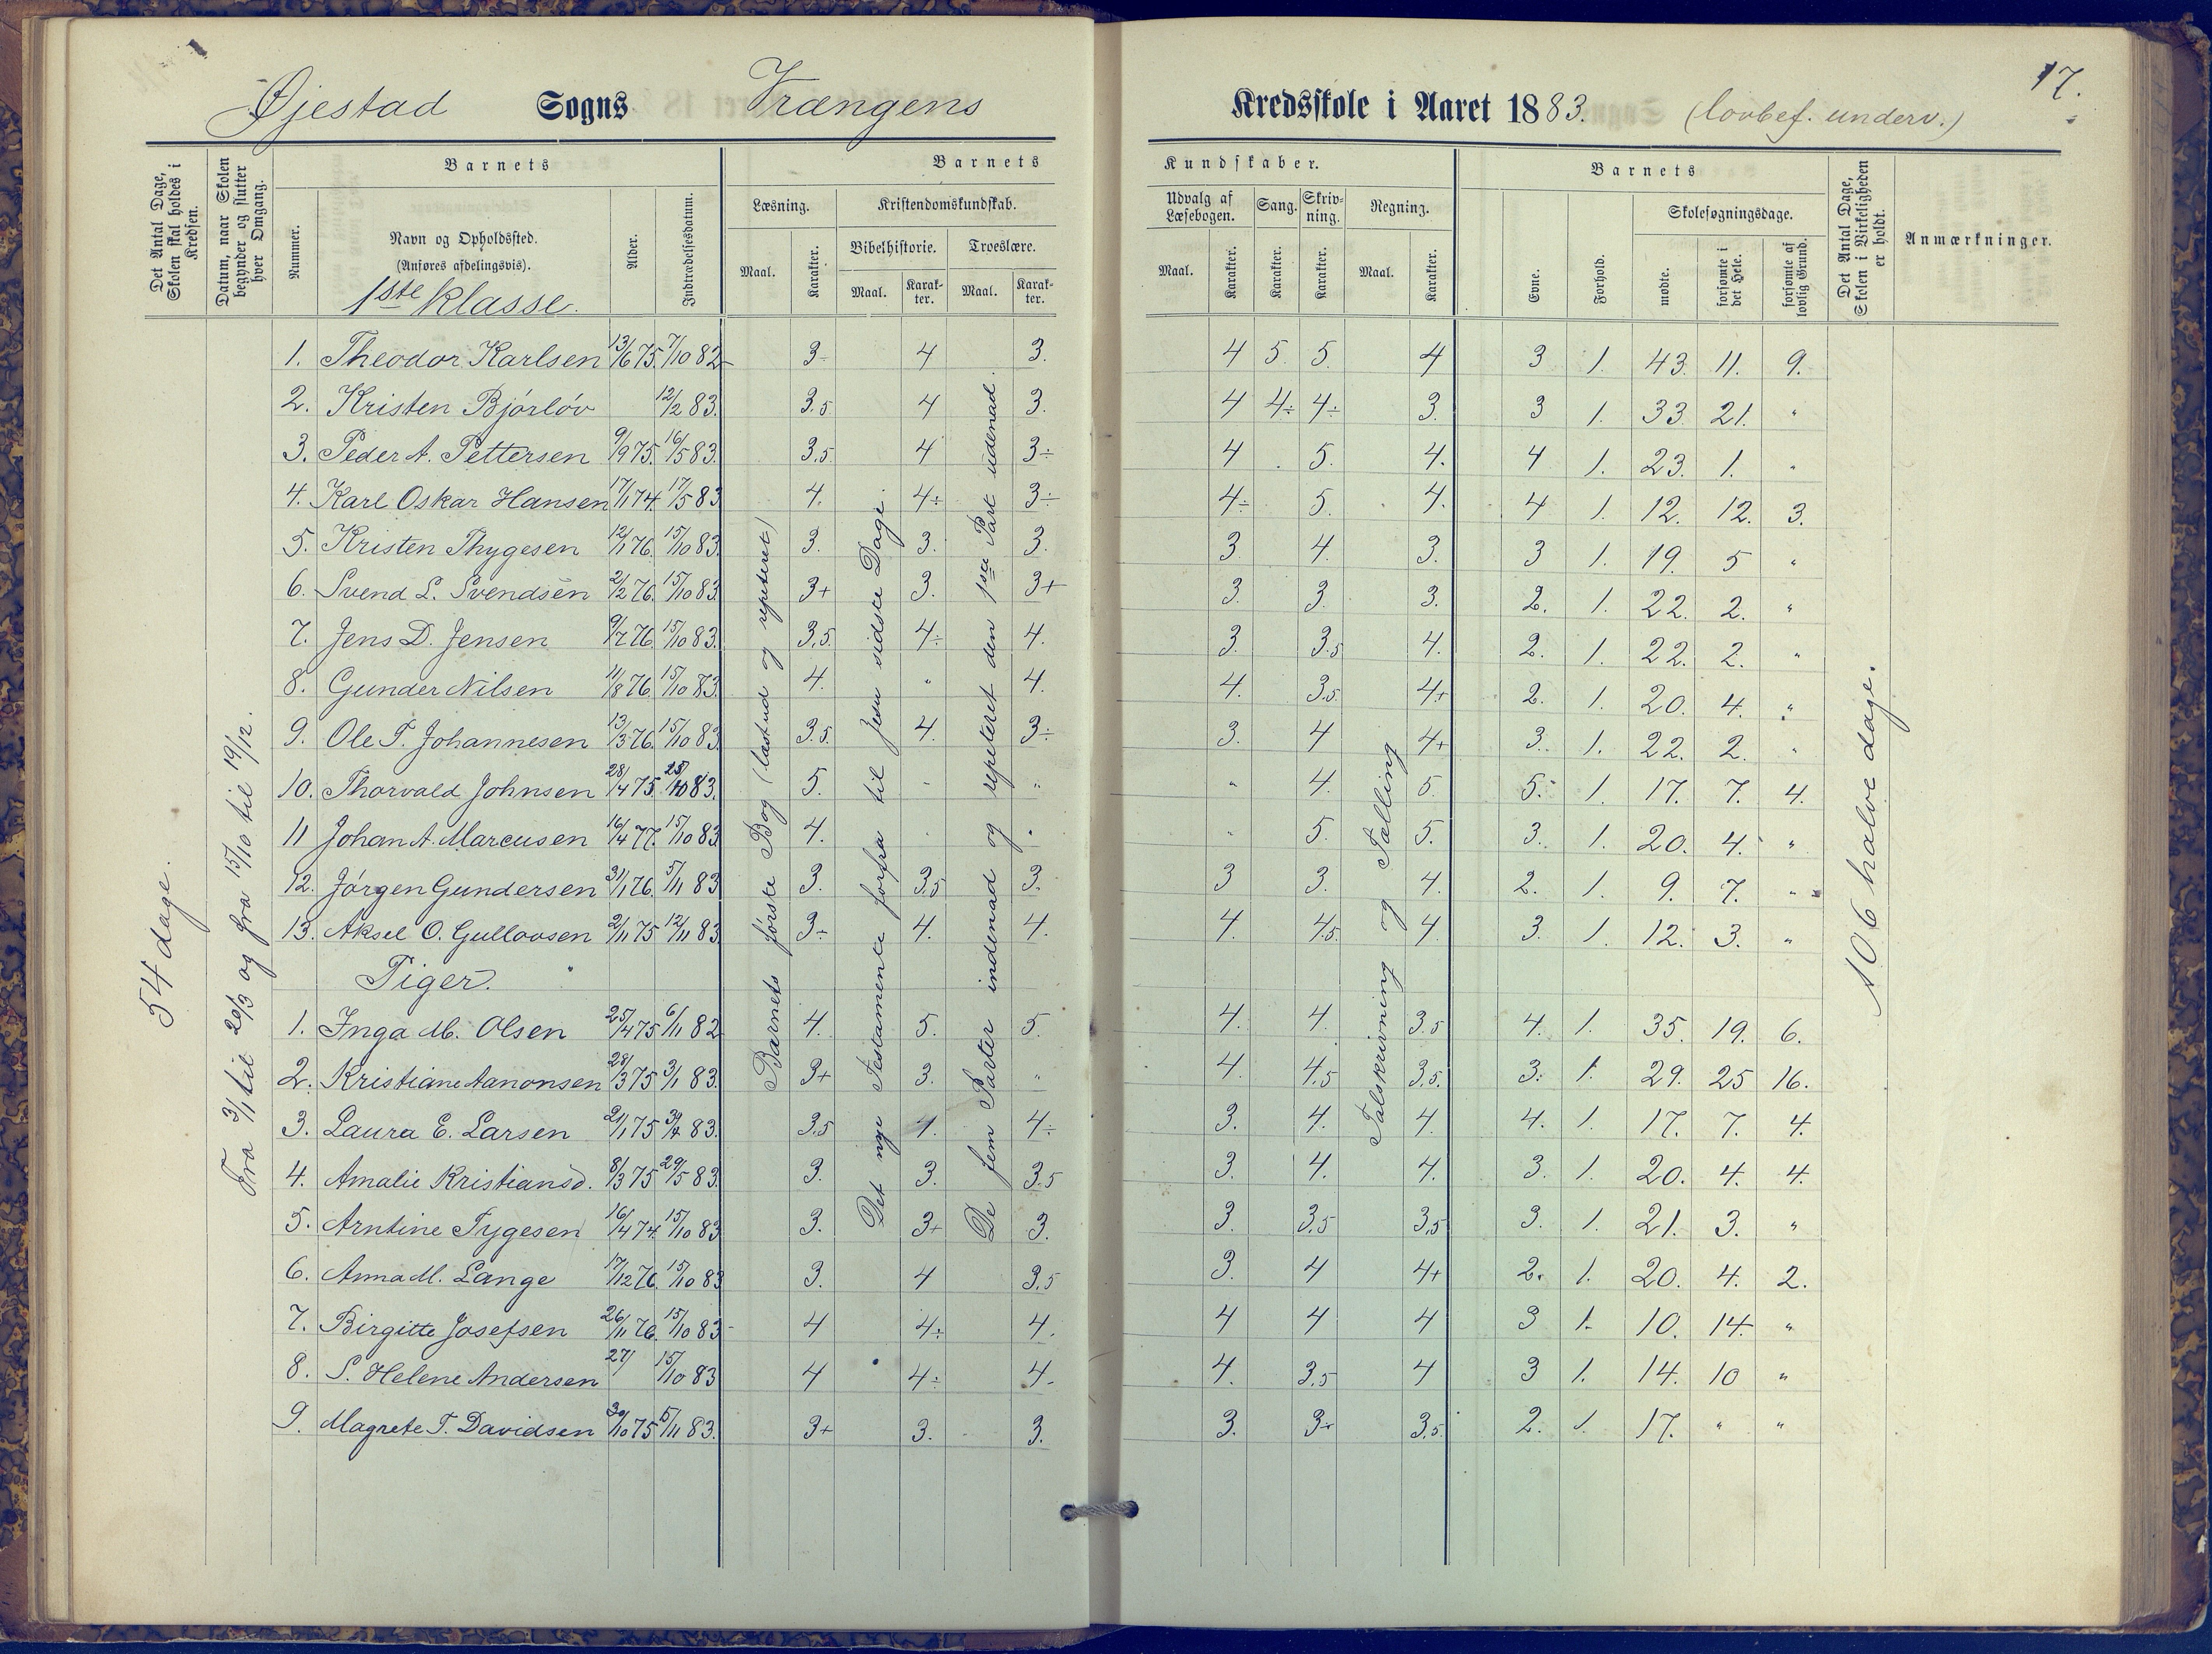 17.
Øjestad Sogns Vrængens Kredsskole i Aaret 1883. (lovbef. underv.)
Det Antal Dage, Skolen skal holdes i Kredsen.
Datum, naar Skolen begynder og slutter hver Omgang.
Barnets
Nummer.
Navn og Opholdssted.
(Anføres afdelingsvis).
1ste klasse.
Alder.
Indtrædelsesdatum.
Barnets Kundskaber.
Læsning. Kristendomskundskab. Udvalg af Læsebogen. Sang. Skrivning. Regning.
Bibelhistorie. Troeslære.
Maal. Karakter. Maal. Karakter. Maal. Karakter. Maal. Karakter. Karakter. Karakter. Maal. Karakter.
Barnets
Evne. Forhold. Skolesøgningsdage.
mødte. forsømte i det Hele. forsømte af lovlig Grund.
Det Antal Dage, Skolen i Virkeligheden er holdt.
Anmærkninger.
54 dage.
Fra 3/1 til 20/3 og fra 15/10 til 19/12.
Barnets første Bog (læst ud og repeteret)
Det nye Testamente forfra til Jesu sidste Dage.
De fem Parter indenad og repeteret den 1ste Part udenad.
Talskrivning og Tælling
106 halve dage.
1. Theodor Karlsen 13/6 75. 7/10 82 3÷ 4 3. 4 5. 5. 4 3 1. 43. 11. 9.
2. Kristen Bjørløv 12/2 83. 3.5 4 3. 4 4÷ 4÷ 3. 3 1. 33. 21. "
3. Peder A. Pettersen 9/9 75. 16/5 83. 3.5. 4 3÷ 4 5. 4. 4 1. 23. 1. "
4. Karl Oskar Hansen 17/1 74. 17/5 83 4. 4÷ 3÷ 4÷ 5. 4. 4 1. 12. 12. 3.
5. Kristen Thygesen 12/1 76. 15/10 83. 3. 3. 3. 3 4. 3. 3 1. 19. 5 "
6. Svend L. Svendsen 2/2 76. 15/10 83. 3+ 3. 3+ 3. 3. 3. 2. 1. 22. 2. "
7. Jens D. Jensen 9/7 76. 15/10 83. 3.5. 4÷ 4. 3. 3.5 4. 2. 1. 22. 2. "
8. Gunder Nilsen 11/8 76. 15/10 83. 4. " 4. 4. 3.5. 4+ 2. 1. 20. 4. "
9. Ole T. Johannesen 13/3 76. 15/10 83. 3.5. 4. 3÷ 3. 4 4+ 3. 1. 22. 2. "
10. Thorvald Johnsen 28/4 75. 25/10 83. 5. - " " 4. 5. 5. 1. 17. 7. 4.
11 Johan A. Marcusen 16/4 77. 15/10 83 4. " 5. 5. 3. 1. 20. 4. "
12. Jørgen Gundersen 31/1 76. 5/11 83 3. 3.5 3. 3 3. 4. 2. 1. 9. 7. "
13. Aksel O. Gullovsen 2/11 75 12/11 83. 3÷ 4. 4. 4. 4.5. 4. 3. 1. 12. 3. "
Piger.
1. Inga M. Olsen 25/4 75 6/11 82 4. 5. 5. 4. 4. 3.5 4. 1. 35. 19. 6.
2. Kristiane Aanonsen 28/3 75 3/1 83. 3+ 3. " 4. 4.5 3.5. 3. 1. 29. 25 16.
3. Laura E. Larsen 21/1 75 83. 3.5 4. 4÷ 3. 4. 4. 4. 1. 17. 7. 4.
4. Amalie Kristiansd. 8/3 75 29/5 83. 3. 3. 3.5 3. 4. 4. 3. 1. 20. 4. 4.
5. Arntine Tygesen 16/4 74. 15/10 83 3. 3+ 3. 3. 3.5 3.5 3. 1. 21. 3. "
6. Anna M. Lange 17/12 76. 15/10 83 3. 4 3.5 3. 4 4+ 2. 1. 20. 4. 2.
7. Birgitte Josefsen 26/11 76. 15/10 83 4 4÷ 4. 4 4 4 3 1. 10. 14. "
8. S. Helene Andersen 27/ 15/10 83 4 4÷ 4. 4. 3.5 4 3 1. 14. 10 "
9. Magrete T. Davidsen 30/10 75 5/11 83. 3+ 3. 3. 3. 3+ 3.5. 2. 1. 17. " "